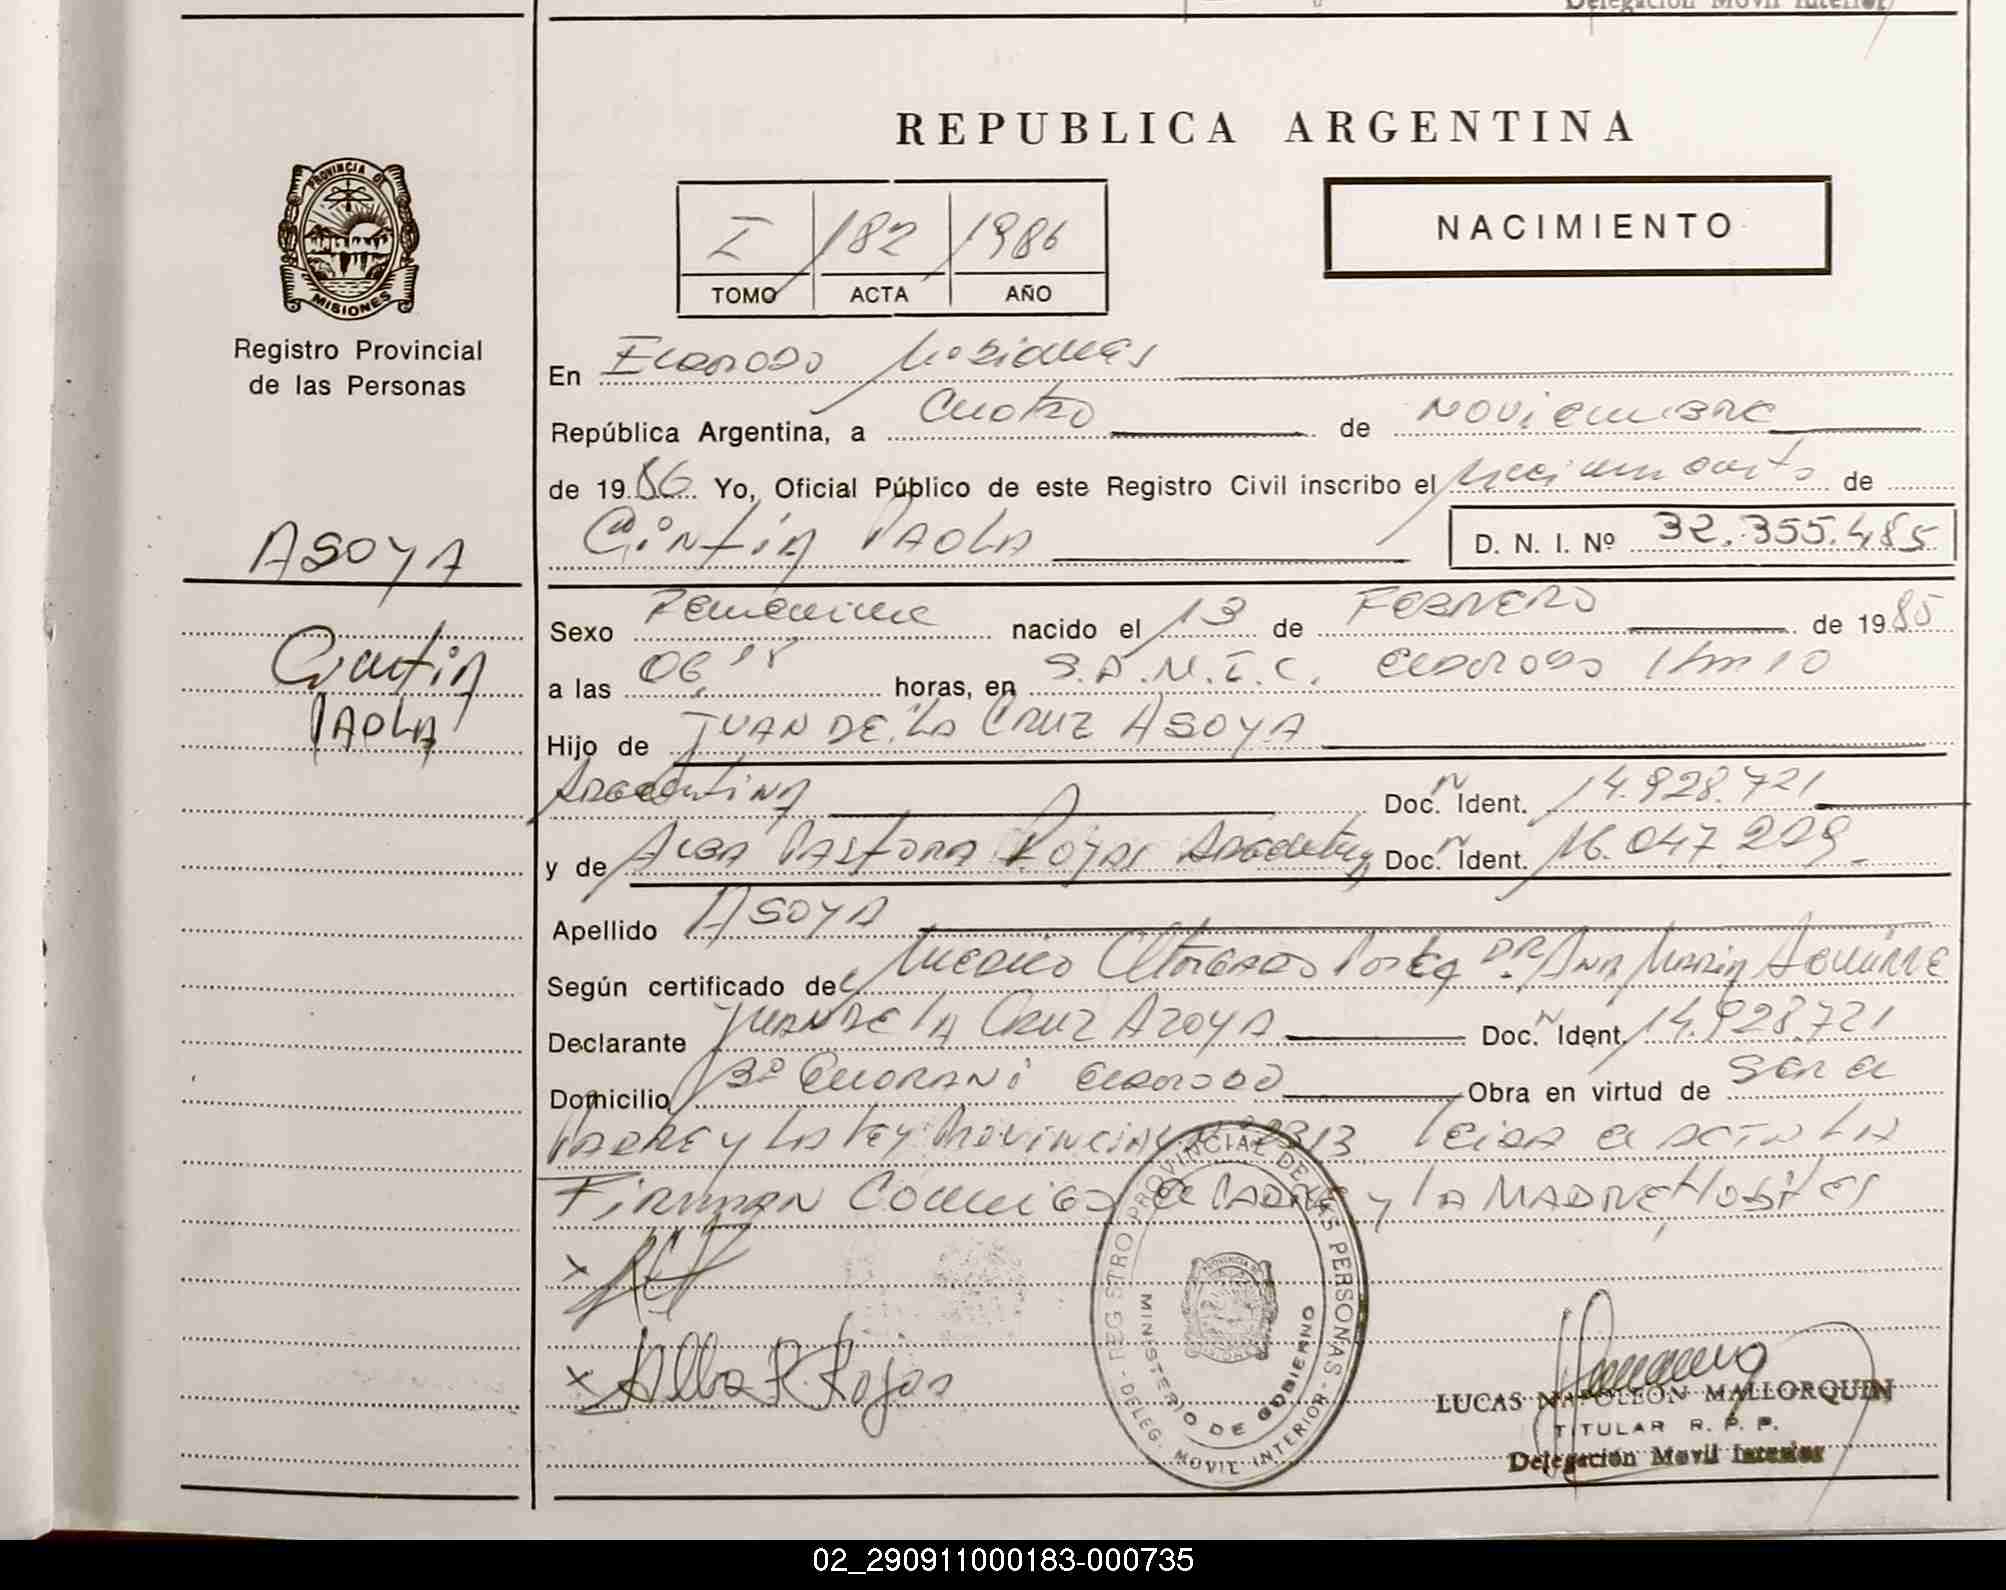 Delegación Movil Interior
REPUBLICA ARGENTINA
PROVINCIA DE
MISIONES
I 182 1986
TOMO ACTA AÑO
NACIMIENTO
Registro Provincial
de las Personas
En Eldorado Misiones
República Argentina, a Cuatro de Noviembre
de 1986 Yo, Oficial Público de este Registro Civil inscribo el Nacimiento de
ASOYA
Cintia PAOLA D. N. I. Nº 32.355.485
Cintia
PAOLA
Sexo Femenino nacido el 13 de FEBRERO de 1985
a las 06, horas, en S.A.M.I.C. Eldorado Km 10
Hijo de JUAN DE LA CRUZ ASOYA
Argentina Doc. N Ident. 14.928.721
y de Alba Pastora Rojas Argentina Doc. N Ident. 16.047.
Apellido ASOYA
Según certificado de Medico Otorgado Por la DRA Ana Maria Aguirre
Declarante JUAN DE LA CRUZ AZOYA Doc. N Ident. 14.928.721
Domicilio Bº Guarani Eldorado Obra en virtud de Ser el
PADRE y LA LEY PROVINCIAL Nº 2313 Leida el ACTA LA
FIRMAN Conmigo el PADRE y LA MADRE
REGISTRO PROVINCIAL DE LAS PERSONAS
MINISTERIO DE GOBIERNO
- DELEG. MOVIL INTERIOR -
x
x Alba P. Rojas
LUCAS NAPOLEON MALLORQUIN
TITULAR R. P. P.
Delegación Movil Interior
02_290911000183-000735